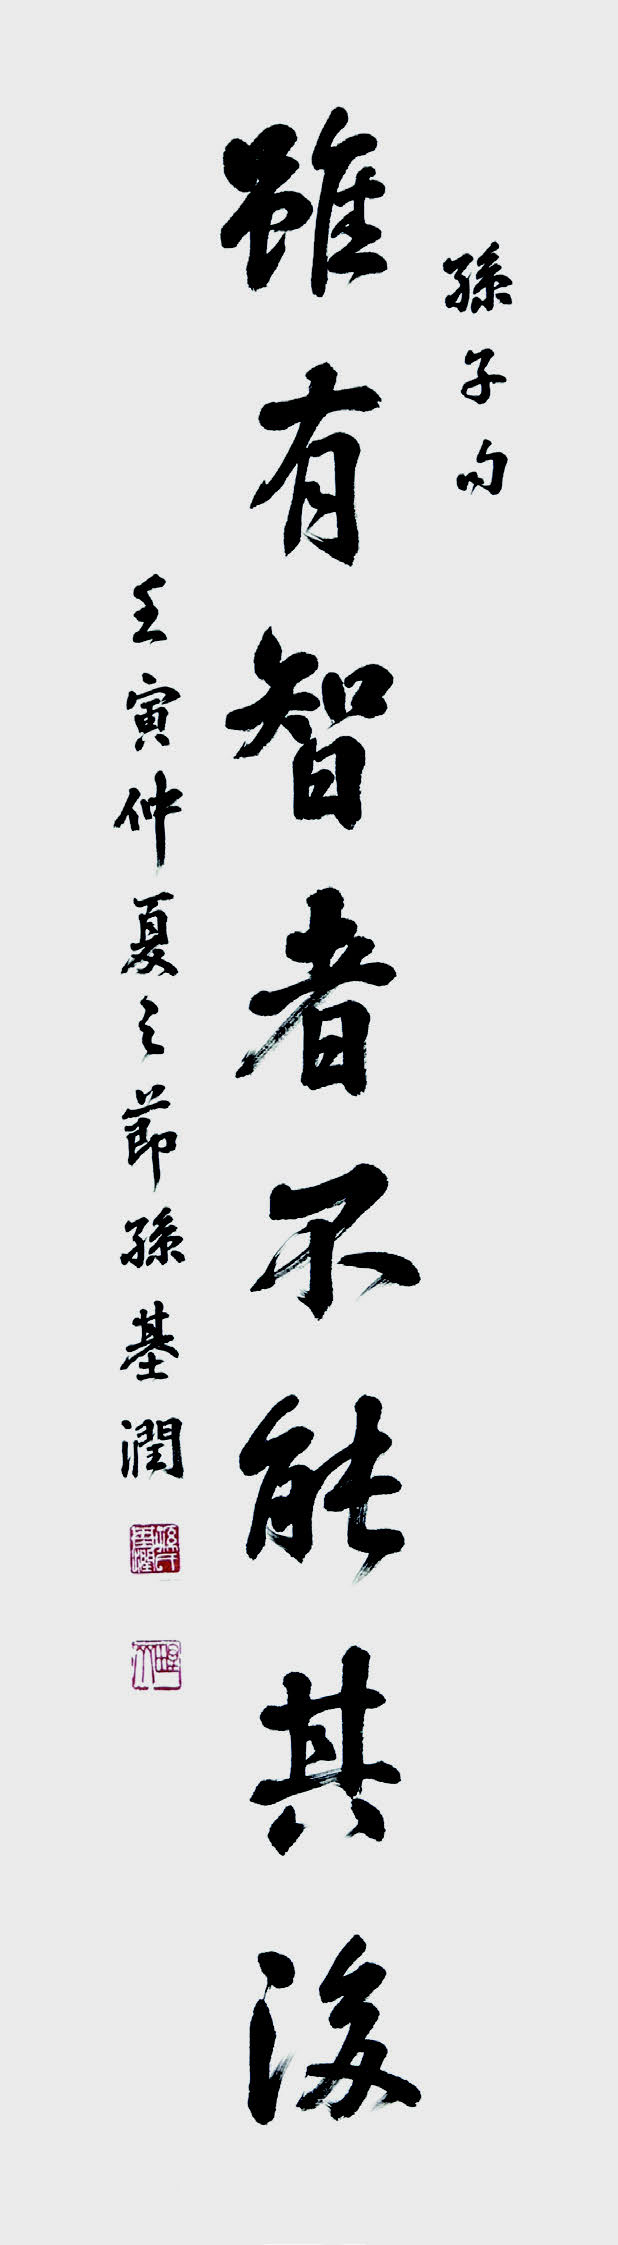 孫子句
雖有智者不能其後
壬寅仲夏之節孫基潤